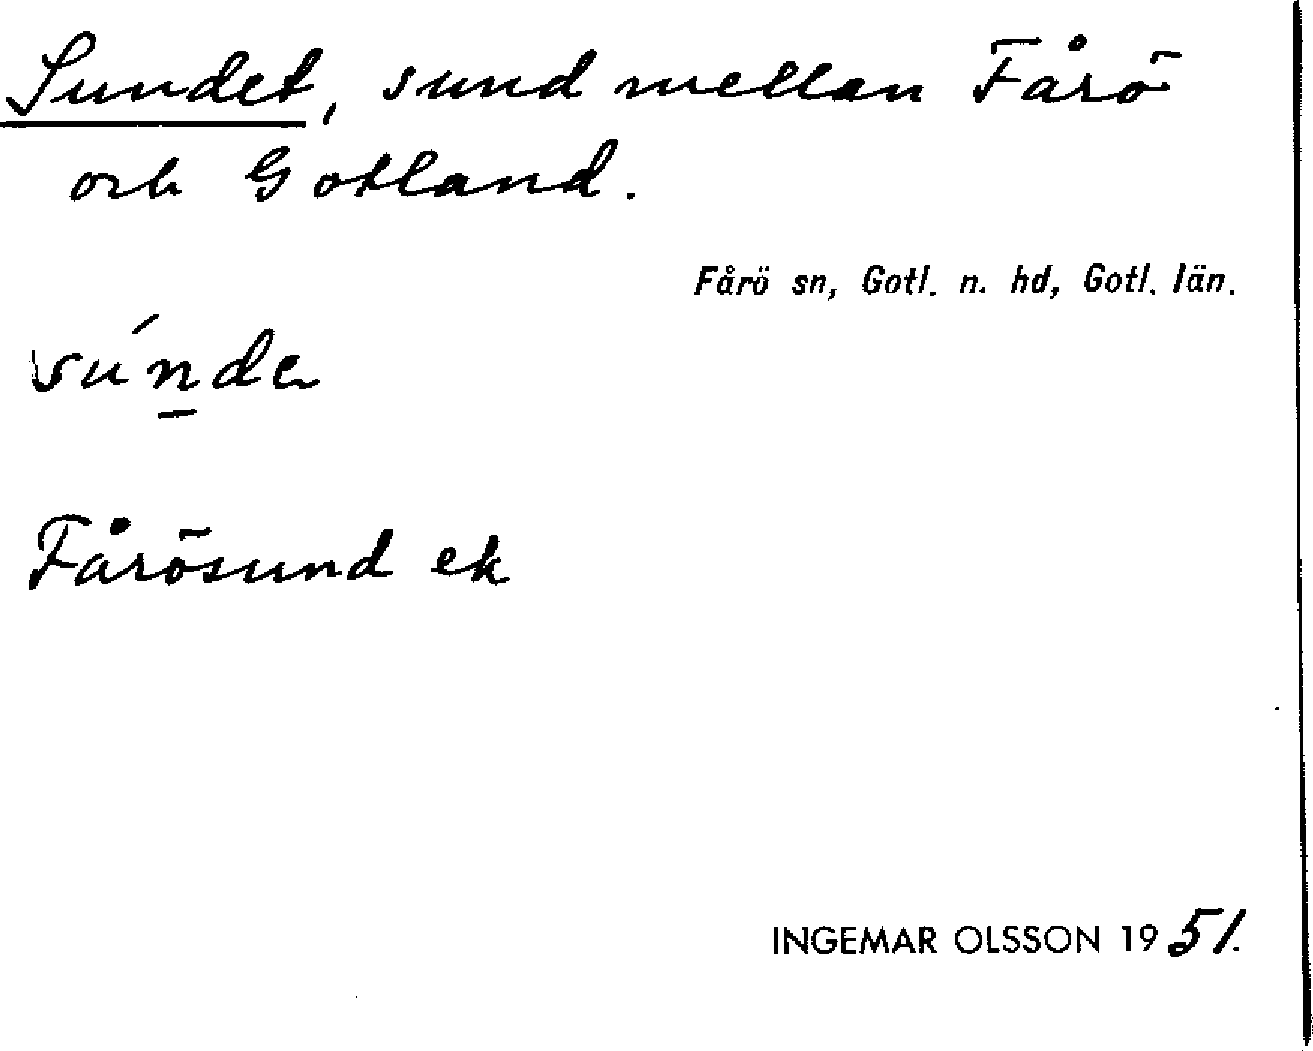 Sundet, sund mellan Fårö
och Gotland.
Fårö sn, Gotl. n. hd, Gotl. län.
súnde
Fårösund ek
INGEMAR OLSSON 1951.